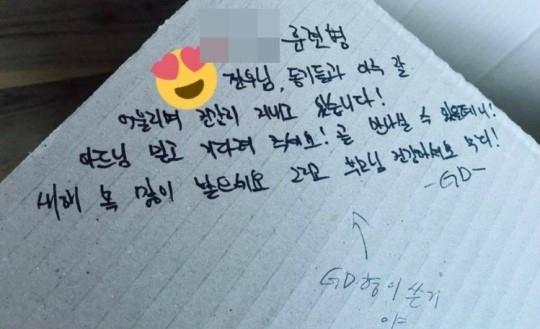 훈련병
전우님, 동기들과 아주 잘
어울리며 건강히 지내고 있습니다!
아드님 믿고 기다려 주세요! 곧 만나실 수 있을테니!
새해 복 많이 받으세요 그리고 부모님 건강하세요 녹디!
-GD-
GD형이 쓴거
야